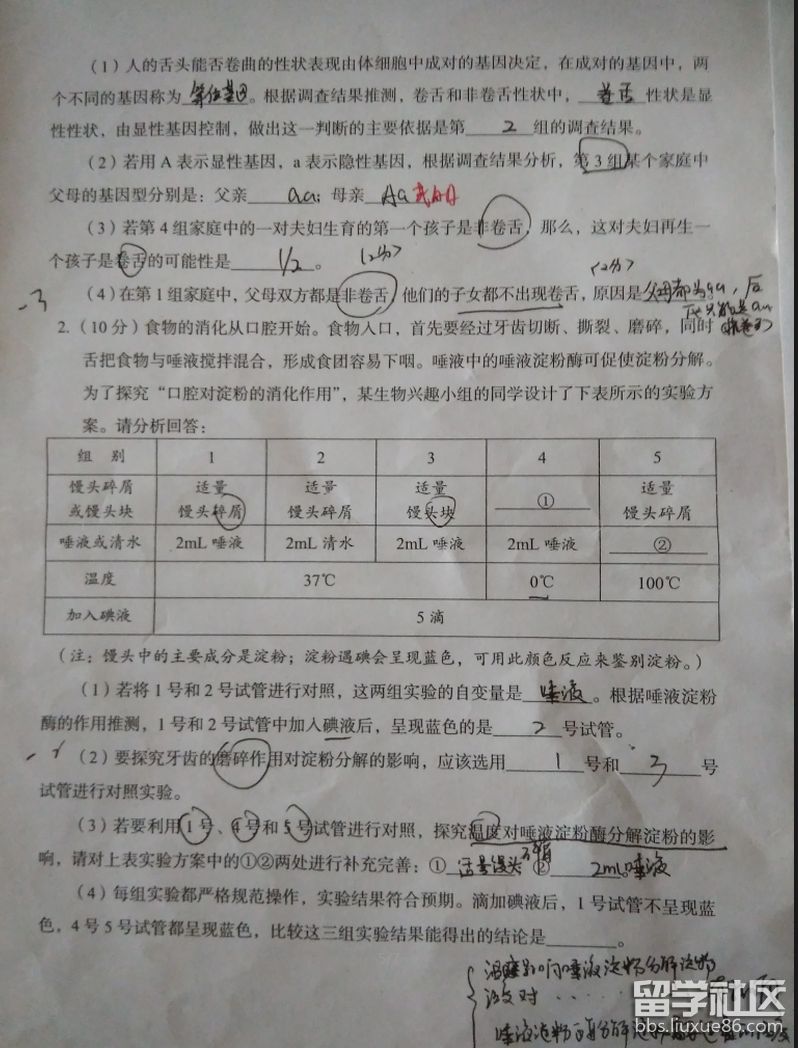 (1)人的舌头能否卷曲的性状表现由体细胞中成对的基因决定,在成对的基因中,两
个不同的基因称为 等位基因。根据调查结果推测,卷舌和非卷舌性状中, 卷舌 性状是显
性性状,由显性基因控制,做出这一判断的主要依据是第 2 组的调查结果。
(2)若用A表示显性基因,a表示隐性基因,根据调查结果分析,第3组某个家庭中
父母的基因型分别是:父亲 aa;母亲 Aa或AA
(3)若第4组家庭中的一对夫妇生育的第一个孩子是非卷舌,那么,这对夫妇再生一
个孩子是卷舌的可能性是 1/2 。 (2分)
(2分)
(4)在第1组家庭中,父母双方都是非卷舌,他们的子女都不出现卷舌,原因是父母都为aa,
-3
2.(10分)食物的消化从口腔开始。食物入口,首先要经过牙齿切断、撕裂、磨碎,同时
舌把食物与唾液搅拌混合,形成食团容易下咽。唾液中的唾液淀粉酶可促使淀粉分解。
为了探究“口腔对淀粉的消化作用”,某生物兴趣小组的同学设计了下表所示的实验方
案。请分析回答:
组 别 1 2 3 4 5
馒头碎屑或馒头块 适量馒头碎屑 适量馒头碎屑 适量馒头块 ① 适量馒头碎屑
唾液或清水 2mL 唾液 2mL 清水 2mL 唾液 2mL 唾液 ②
温度 37℃ 0℃ 100℃
加入碘液 5滴
(注:馒头中的主要成分是淀粉;淀粉遇碘会呈现蓝色,可用此颜色反应来鉴别淀粉。)
(1)若将1号和2号试管进行对照,这两组实验的自变量是 唾液 。根据唾液淀粉
酶的作用推测,1号和2号试管中加入碘液后,呈现蓝色的是 2 号试管。
(2)要探究牙齿的磨碎作用对淀粉分解的影响,应该选用 1 号和 3 号
试管进行对照实验。
(3)若要利用1号、4号和5号试管进行对照,探究温度对唾液淀粉酶分解淀粉的影
响,请对上表实验方案中的①②两处进行补充完善:① 适量馒头碎屑 ② 2mL唾液
(4)每组实验都严格规范操作,实验结果符合预期。滴加碘液后,1号试管不呈现蓝
色,4号5号试管都呈现蓝色,比较这三组实验结果能得出的结论是 。
温度影响唾液淀粉分解淀粉
留学社区
bbs.liuxue86.com